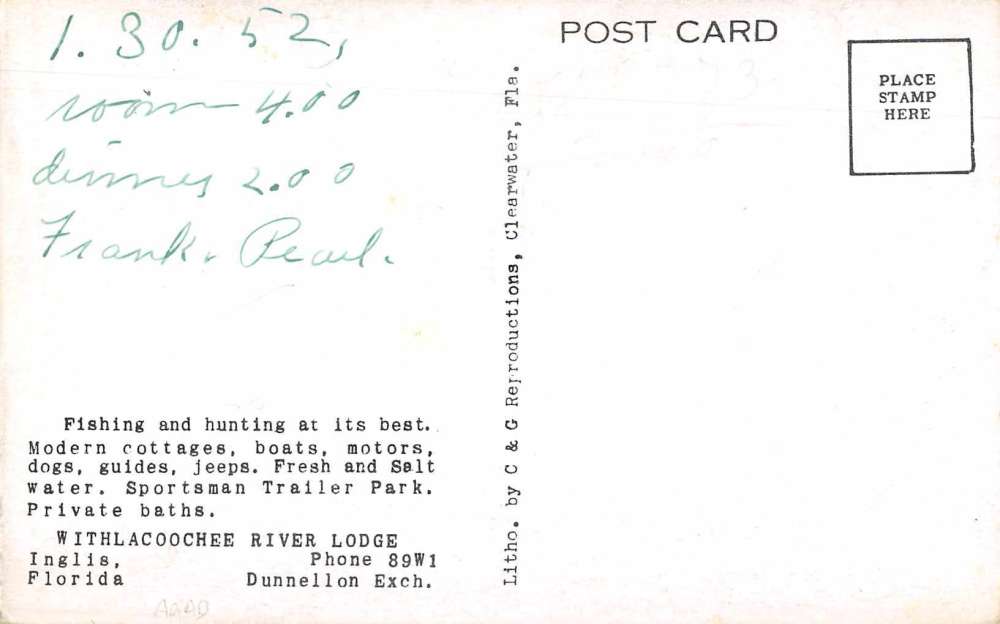 1.30.52,
room 4.00
dinner 2.00
Frank. Pearl.
Fishing and hunting at its best.
Modern cottages, boats, motors,
dogs, guides, jeeps. Fresh and Salt
water. Sportsman Trailer Park.
Private baths.
WITHLACOOCHEE RIVER LODGE
Inglis, Phone 89W1
Florida Dunnellon Exch.
Litho. by C & G Reproductions, Clearwater, Fla.
POST CARD
PLACE
STAMP
HERE